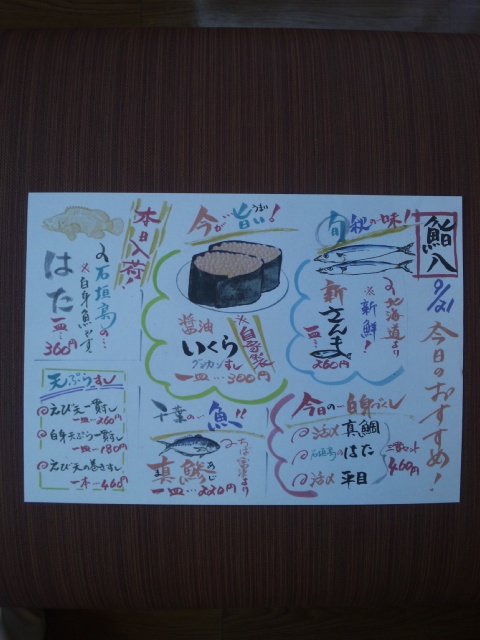 鮨八
9/21
今日のおすすめ!
旬 秋の味!!
北海道より
※新鮮!
新さんま
一皿…260円
今が旨い!
うまい
※自家製
醤油
いくら
グンカンすし
一皿…300円
本日入荷!
石垣島の…
はた
※白身魚です
一皿…360円
今日の白身づくし
活〆真鯛
石垣島のはた
活〆平目
三点セット
460円
千葉の魚!!
ちば富津より
真鯵
まあじ
一皿…220円
天ぷらすし
えび天一貫すし
一皿…260円
白身天ぷら一貫すし
一皿…180円
えび天の巻きすし
一本…460円